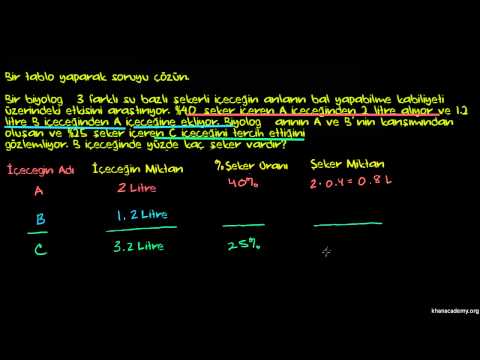 Bir tablo yaparak soruyu çözün.
Bir biyolog 3 farklı su bazlı şekerli içeceğin arıların bal yapabilme kabiliyeti
üzerindeki etkisini araştırıyor. %40 şeker içeren A içeceğinden 2 litre alıyor ve 1.2
litre B içeceğinden A içeceğine ekliyor. Biyolog arının A ve B'nin karışımından
oluşan ve %25 şeker içeren C içeceğini tercih ettiğini
gözlemliyor. B içeceğinde yüzde kaç şeker vardır?
İçeceğin Adı İçeceğin Miktarı % Şeker Oranı Şeker Miktarı
A 2 Litre 40% 2 · 0.4 = 0.8 L
B 1.2 Litre
C 3.2 Litre 25%
khanacademy.org